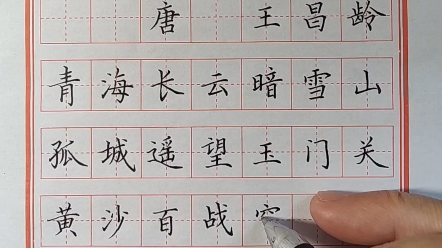 唐 王昌龄
青海长云暗雪山
孤城遥望玉门关
黄沙百战